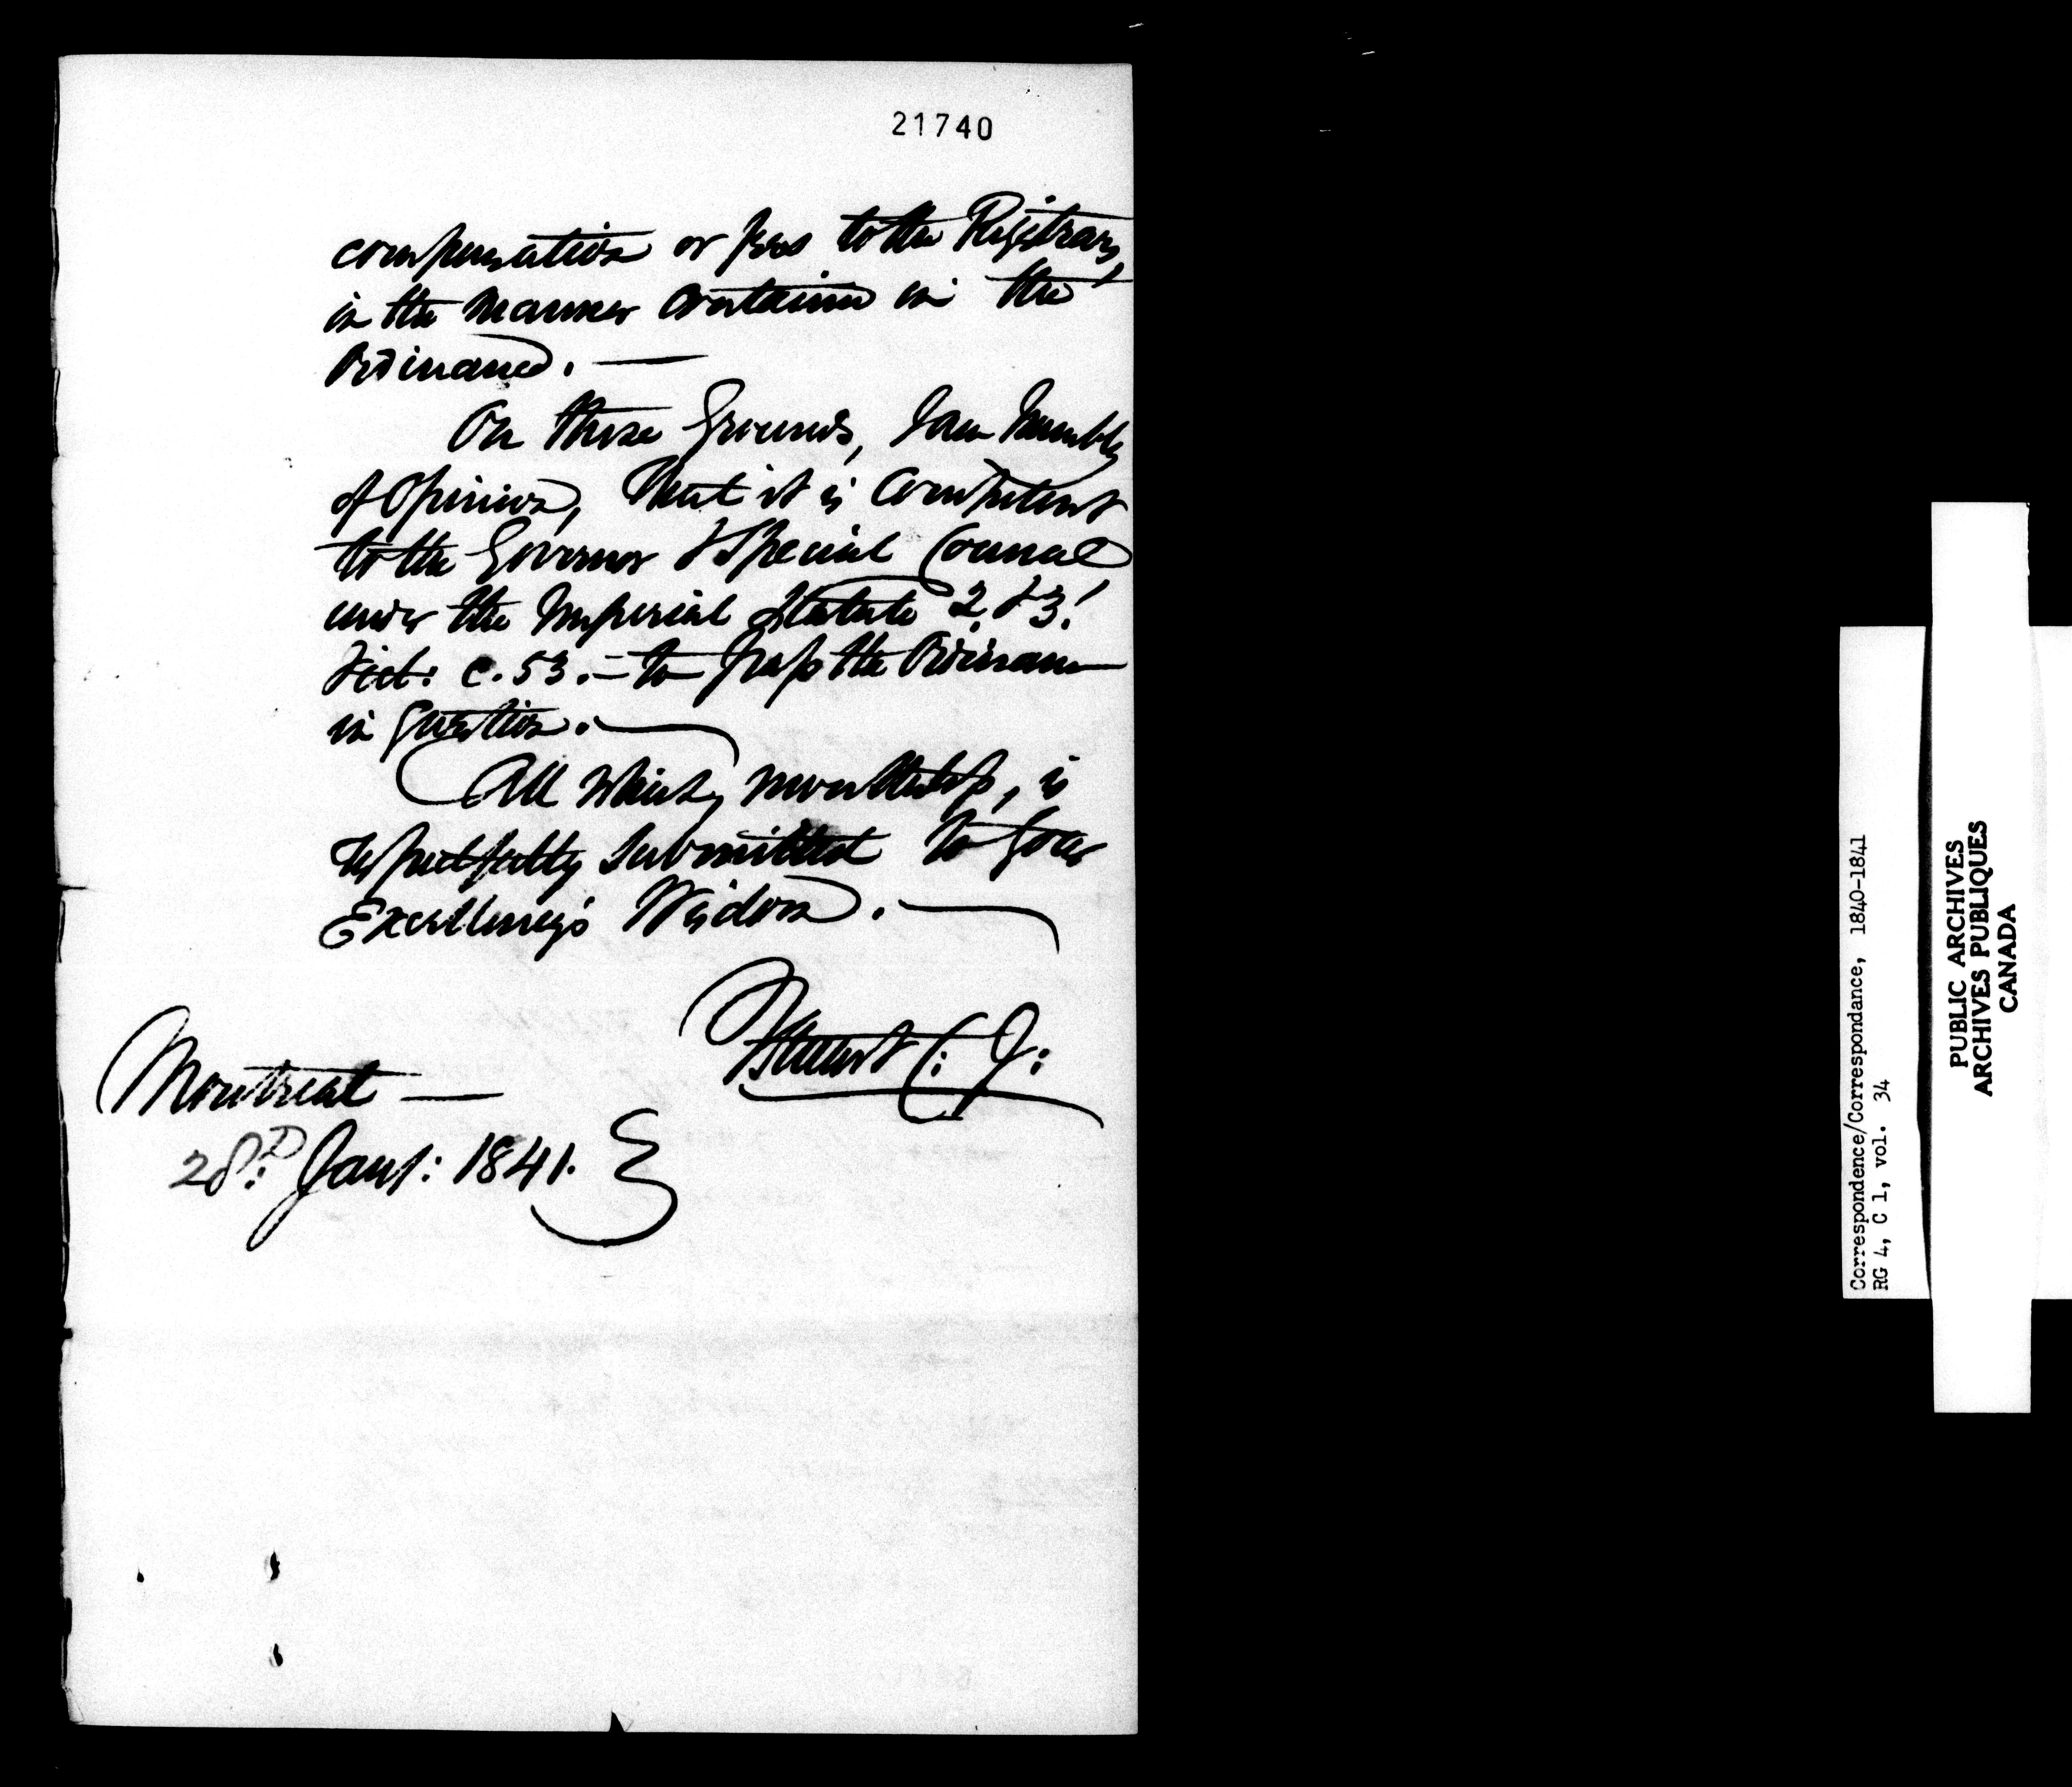 21740
compensation or fees to the Registrars,
in the manner contained in the
Ordinance. —
On these Grounds, I am humbly
of Opinion, That it is Competent
to the Governor & Special Council
under the Imperial Statute 2. & 3.
Vict: c. 53. — to pass the Ordinance
in question. —
All which, nevertheless, is
respectfully submitted to Your
Excellency's Wisdom. —
Stuart C: J:
Montreal —
28.D Jany: 1841.
Correspondence/Correspondance, 1840-1841
RG 4, C 1, vol. 34
PUBLIC ARCHIVES
ARCHIVES PUBLIQUES
CANADA